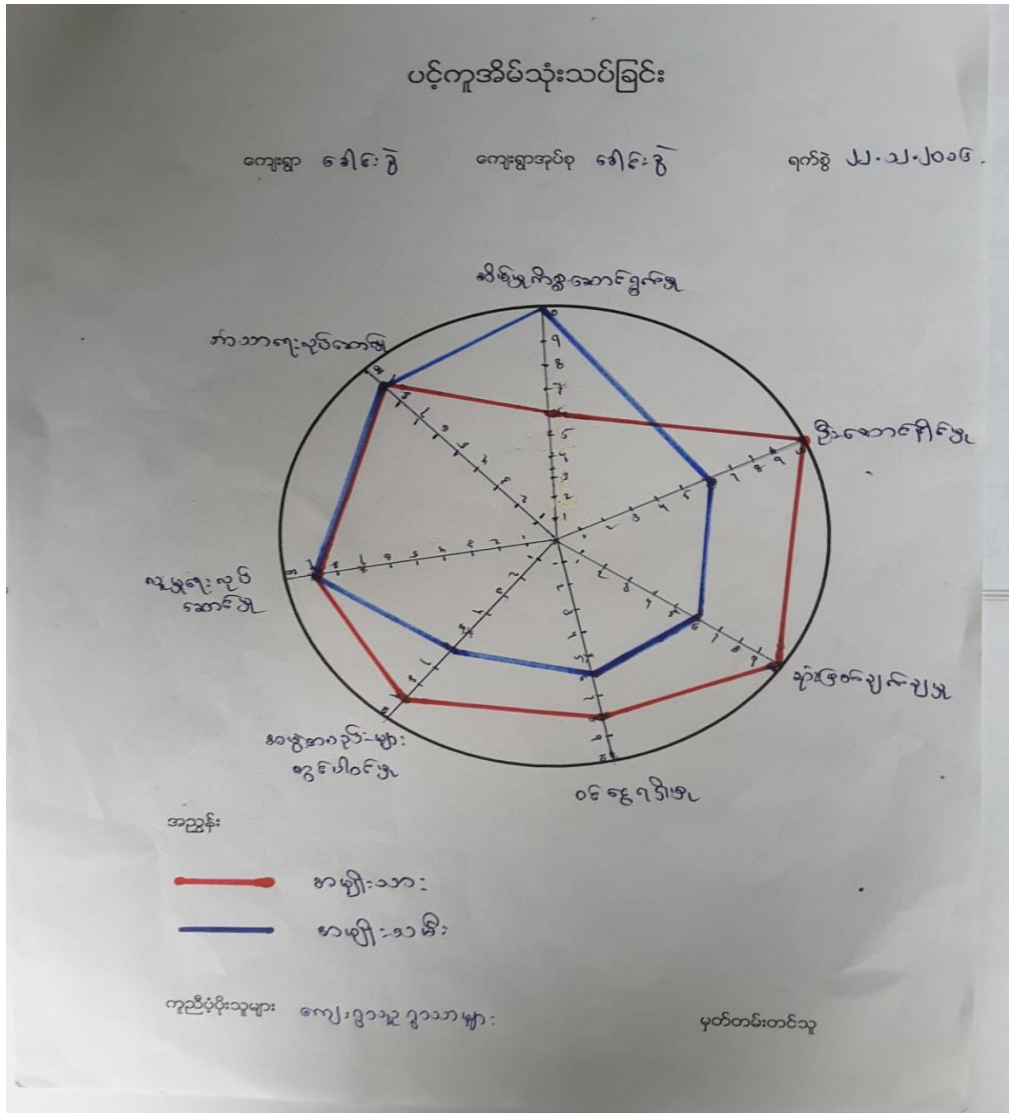 ပင့်ကူအိမ်သုံးသပ်ခြင်း
ကျေးရွာ ခေါင်းခွဲ ကျေးရွာအုပ်စု ခေါင်းခွဲ ရက်စွဲ ၂၂.၁၂.၂၀၁၆.
အိမ်မှုကိစ္စဆောင်ရွက်မှု
ဘာသာရေးလုပ်ဆောင်မှု
ဦးဆောင်နိုင်မှု
လူမှုရေးလုပ်
ဆောင်မှု
ဆုံးဖြတ်ချက်ချမှု
အဖွဲ့အစည်းများ
တွင်ပါဝင်မှု
ဝင်ငွေရရှိမှု
အညွှန်း
အမျိုးသား
အမျိုးသမီး
ကူညီပံ့ပိုးသူများ ကျေးရွာသူရွာသားများ
မှတ်တမ်းတင်သူ